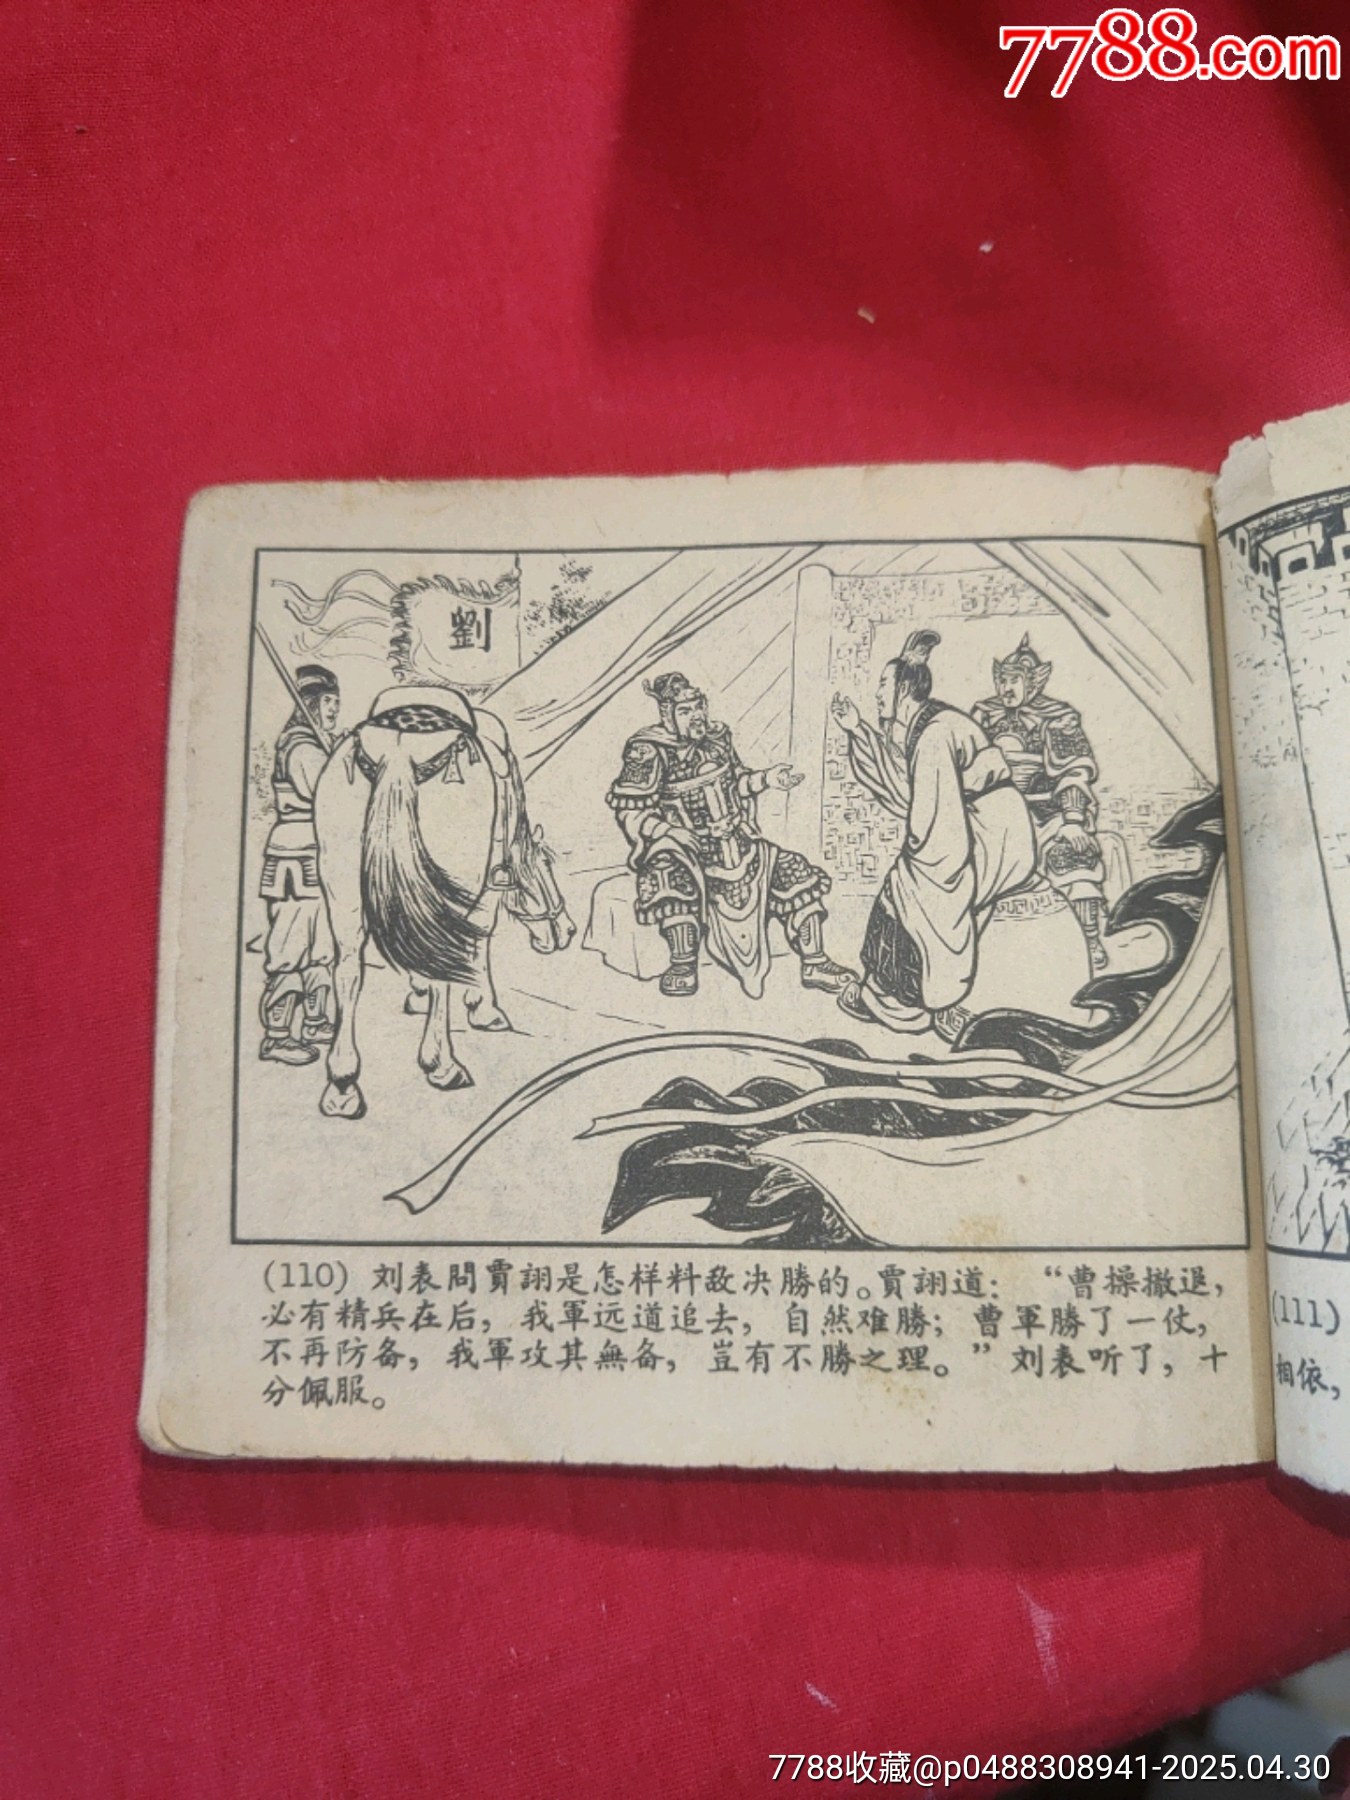 7788.com
劉
(110) 刘表問賈詡是怎样料敌决勝的。賈詡道：“曹操撤退，
必有精兵在后，我軍远道追去，自然难勝；曹軍勝了一仗，
不再防备，我軍攻其無备，豈有不勝之理。”刘表听了，十
分佩服。
(111)
相依，
7788收藏@p0488308941-2025.04.30